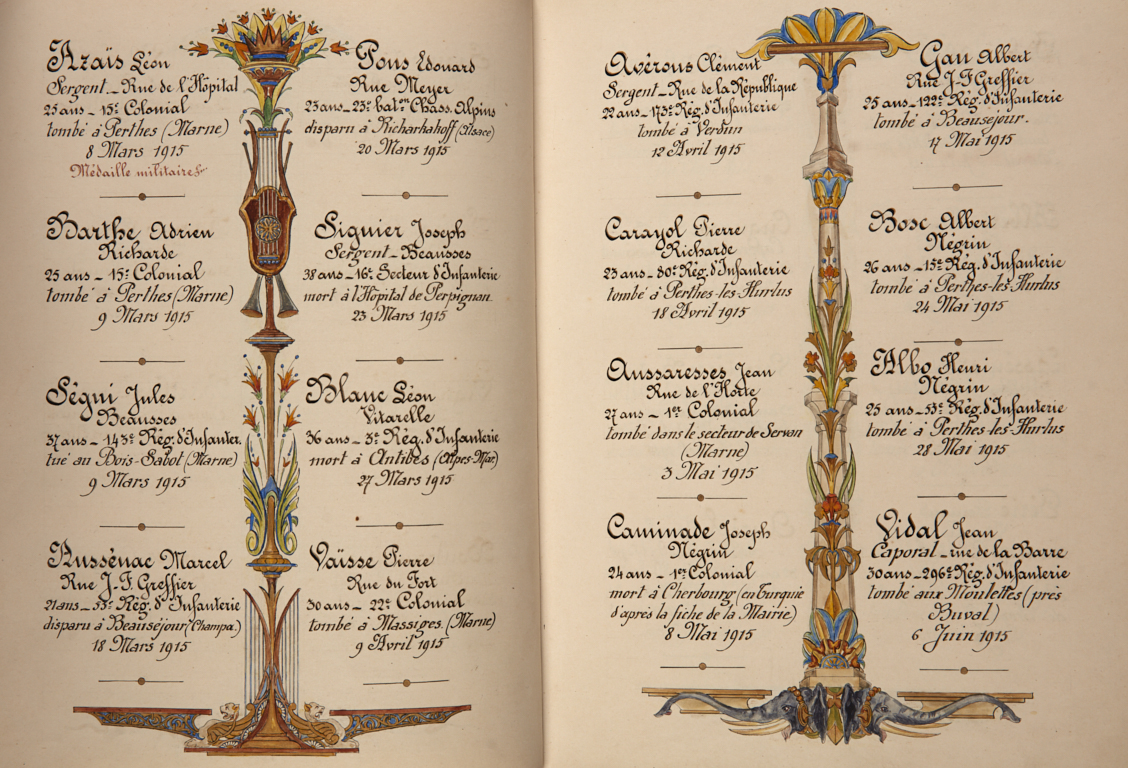 Azaïs Léon
Sergent - Rue de l'Hôpital
25 ans - 15e Colonial
tombé à Perthes (Marne)
8 Mars 1915
Médaille militaire
Barthe Adrien
Richarde
25 ans - 15e Colonial
tombé à Perthes (Marne)
9 Mars 1915
Ségui Jules
Beausses
37 ans - 143e Rég. d'Infanter.
tué au Bois-Sabot (Marne)
9 Mars 1915
Aussénac Marcel
Rue J-F Greffier
21 ans - 53e Rég. d'Infanterie
disparu à Beauséjour (Champa.)
18 Mars 1915
Pons Edouard
Rue Meyer
23 ans - 23e bat.on Chass. Alpins
disparu à Richarhahoff (Alsace)
20 Mars 1915
Siguier Joseph
Sergent - Beausses
38 ans - 16e Secteur d'Infanterie
mort à l'Hôpital de Perpignan
23 Mars 1915
Blanc Léon
Vitarelle
36 ans - 3e Rég. d'Infanterie
mort à Antibes (Alpes-Mar)
27 Mars 1915
Vaïsse Pierre
Rue du Fort
30 ans - 22e Colonial
tombé à Massiges (Marne)
9 Avril 1915
Avérous Clément
Sergent - Rue de la République
22 ans - 173e Rég. d'Infanterie
tombé à Verdun
12 Avril 1915
Carayol Pierre
Richarde
23 ans - 80e Rég. d'Infanterie
tombé à Perthes-les-Hurlus
18 Avril 1915
Aussaresses Jean
Rue de l'Horte
27 ans - 1er Colonial
tombé dans le secteur de Servon
(Marne)
3 Mai 1915
Caminade Joseph
Négrin
24 ans - 1er Colonial
mort à Cherbourg (en Turquie
d'après la fiche de la Mairie)
8 Mai 1915
Gau Albert
Rue J-F Greffier
25 ans - 122e Rég. d'Infanterie
tombé à Beauséjour.
17 Mai 1915
Bosc Albert
Négrin
26 ans - 15e Rég. d'Infanterie
tombé à Perthes-les-Hurlus
24 Mai 1915
Albo Henri
Négrin
25 ans - 53e Rég. d'Infanterie
tombé à Perthes-les-Hurlus
28 Mai 1915
Vidal Jean
Caporal - rue de la Barre
30 ans - 296e Rég. d'Infanterie
tombé aux Moulettes (près
Buval)
6 Juin 1915